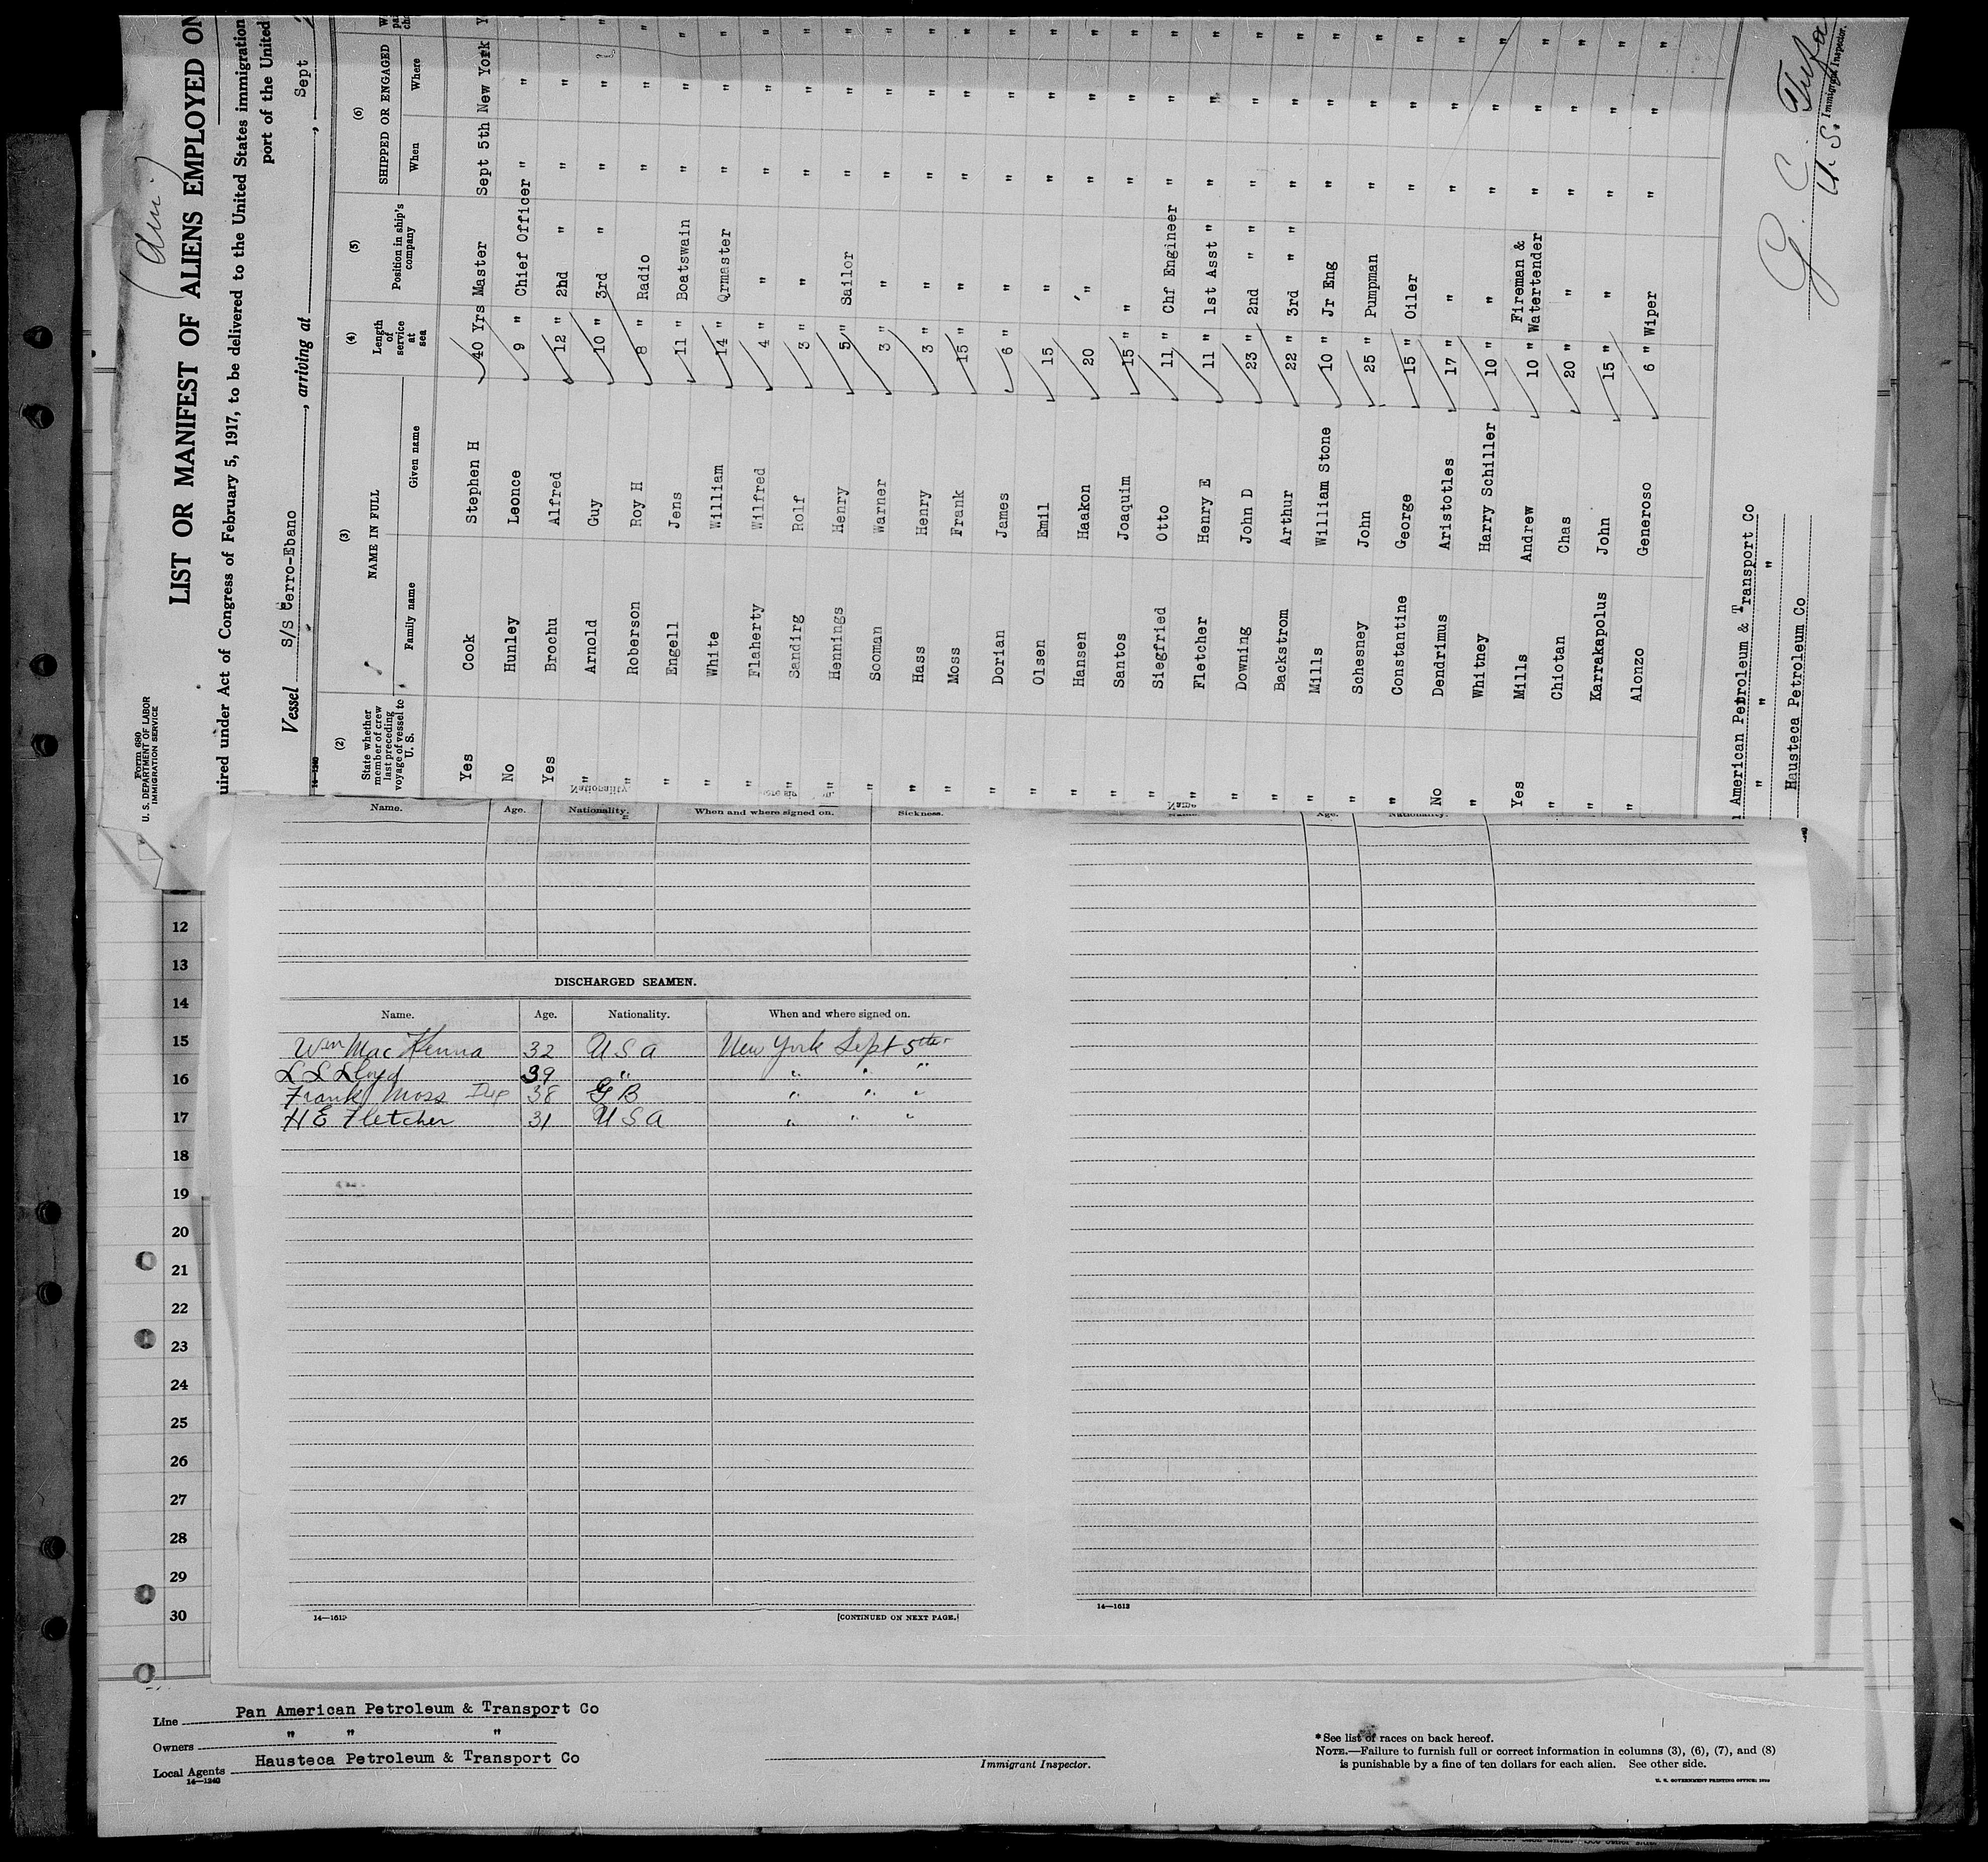 Form 680
U. S. DEPARTMENT OF LABOR
IMMIGRATION SERVICE
LIST OR MANIFEST OF ALIENS EMPLOYED ON
uired under Act of Congress of February 5, 1917, to be delivered to the United States immigration
port of the United
Vessel S/S Cerro-Ebano, arriving at , Sept
14—1240
(2) (3) (4) (5) (6)
State whether member of crew last preceding voyage of vessel to U. S. NAME IN FULL Length of service at sea Position in ship's company SHIPPED OR ENGAGED
Family name Given name When Where
Yes Cook Stephen H 40 Yrs Master Sept 5th New York
No Hunley Leonce 9 " Chief Officer " "
Yes Brochu Alfred 12 " 2nd " " "
" Arnold Guy 10 " 3rd " " "
" Roberson Roy H 8 " Radio " "
" Engell Jens 11 " Boatswain " "
" White William 14 " Qrmaster " "
" Flaherty Wilfred 4 " " " "
" Sandirg Rolf 3 " " " "
" Hennings Henry 5 " Sailor " "
" Sooman Warner 3 " " " "
" Hass Henry 3 " " " "
" Moss Frank 15 " " " "
" Dorian James 6 " " " "
" Olsen Emil 15 " " "
" Hansen Haakon 20 " " "
" Santos Joaquim 15 " " " "
" Siegfried Otto 11 " Chf Engineer " "
" Fletcher Henry E 11 " 1st Asst " " "
" Downing John D 23 " 2nd " " " "
" Backstrom Arthur 22 " 3rd " " " "
" Mills William Stone 10 " Jr Eng " "
" Schesney John 25 " Pumpman " "
" Constantine George 15 " Oiler " "
No Dendrimus Aristotles 17 " " " "
" Whitney Harry Schiller 10 " " " "
Yes Mills Andrew 10 " Fireman & Watertender " "
" Chiotan Chas 20 " " " "
" Karrakapolus John 15 " " " "
" Alonzo Generoso 6 " Wiper " "
American Petroleum & Transport Co
" " "
Hausteca Petroleum Co
G. C.
U. S. Immigrant Inspector.
Name. Age. Nationality. When and where signed on. Sickness.
DISCHARGED SEAMEN.
Name. Age. Nationality. When and where signed on.
Wm MacKenna 32 USA New York Sept 5th
L S Lloyd 39 " " " "
Frank Moss 38 GB " " "
H E Fletcher 31 USA " " "
14—1613 [CONTINUED ON NEXT PAGE.]
14—1613
12
13
14
15
16
17
18
19
20
21
22
23
24
25
26
27
28
29
30
Line Pan American Petroleum & Transport Co
Owners " " "
Local Agents Hausteca Petroleum & Transport Co
14—1240
Immigrant Inspector.
*See list of races on back hereof.
NOTE.—Failure to furnish full or correct information in columns (3), (6), (7), and (8)
is punishable by a fine of ten dollars for each alien. See other side.